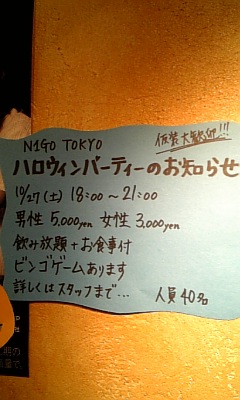 N1GO TOKYO
仮装大歓迎!!!
ハロウィンパーティーのお知らせ
10/27(土) 18:00〜21:00
男性 5,000yen 女性 3,000yen
飲み放題+お食事付
ビンゴゲームあります
詳しくはスタッフまで...
人員40名